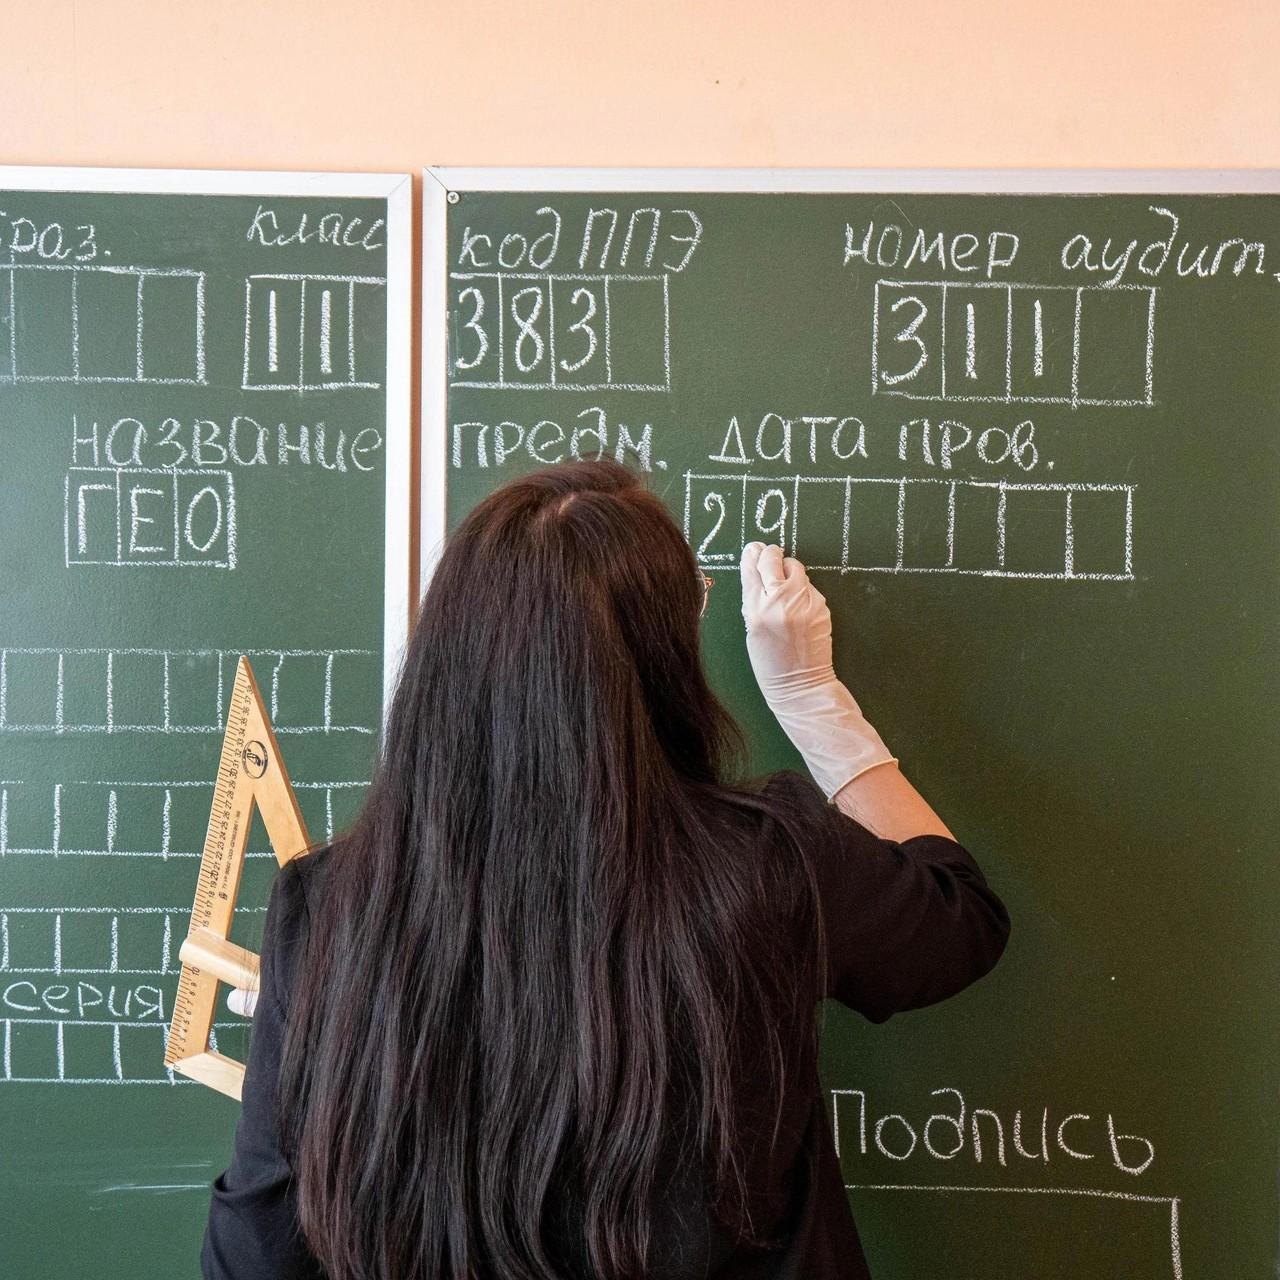 раз. класс
11
название
ГЕО
серия
код ППЭ номер аудит.
383 311
предм. Дата пров.
29
Подпись